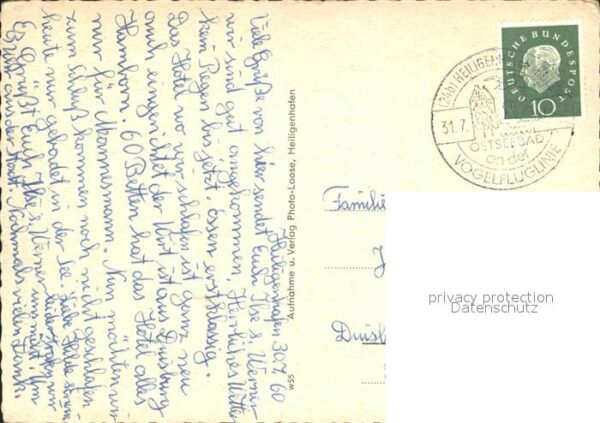 Heiligenhafen 30.7.60
Viele Grüße von hier sendet Euch Ilse u. Werner
wir sind gut angekommen, Herrliches Wetter
kein Regen bis jetzt. Essen erstklassig.
Das Hotel wo wir schlafen ist ganz neu
auch eingerichtet der Wirt ist aus Duisburg
Hamborn. 60 Betten hat das Hotel alles
nur für Mannesmann. Nun möchten wir
zum Schluß kommen noch nicht geschlafen
heute nur gebadet in der See. Liebe Hilde
Es Grüßt Euch Ilse u. Werner
Nochmals vielen Dank.
Aufnahme u. Verlag Photo-Loose, Heiligenhafen
w55
DEUTSCHE BUNDESPOST
10
(24b) HEILIGENH
31.7.
OSTSEEBAD
an der
VOGELFLUGLINIE
Familie
J
Duisb
privacy protection
Datenschutz